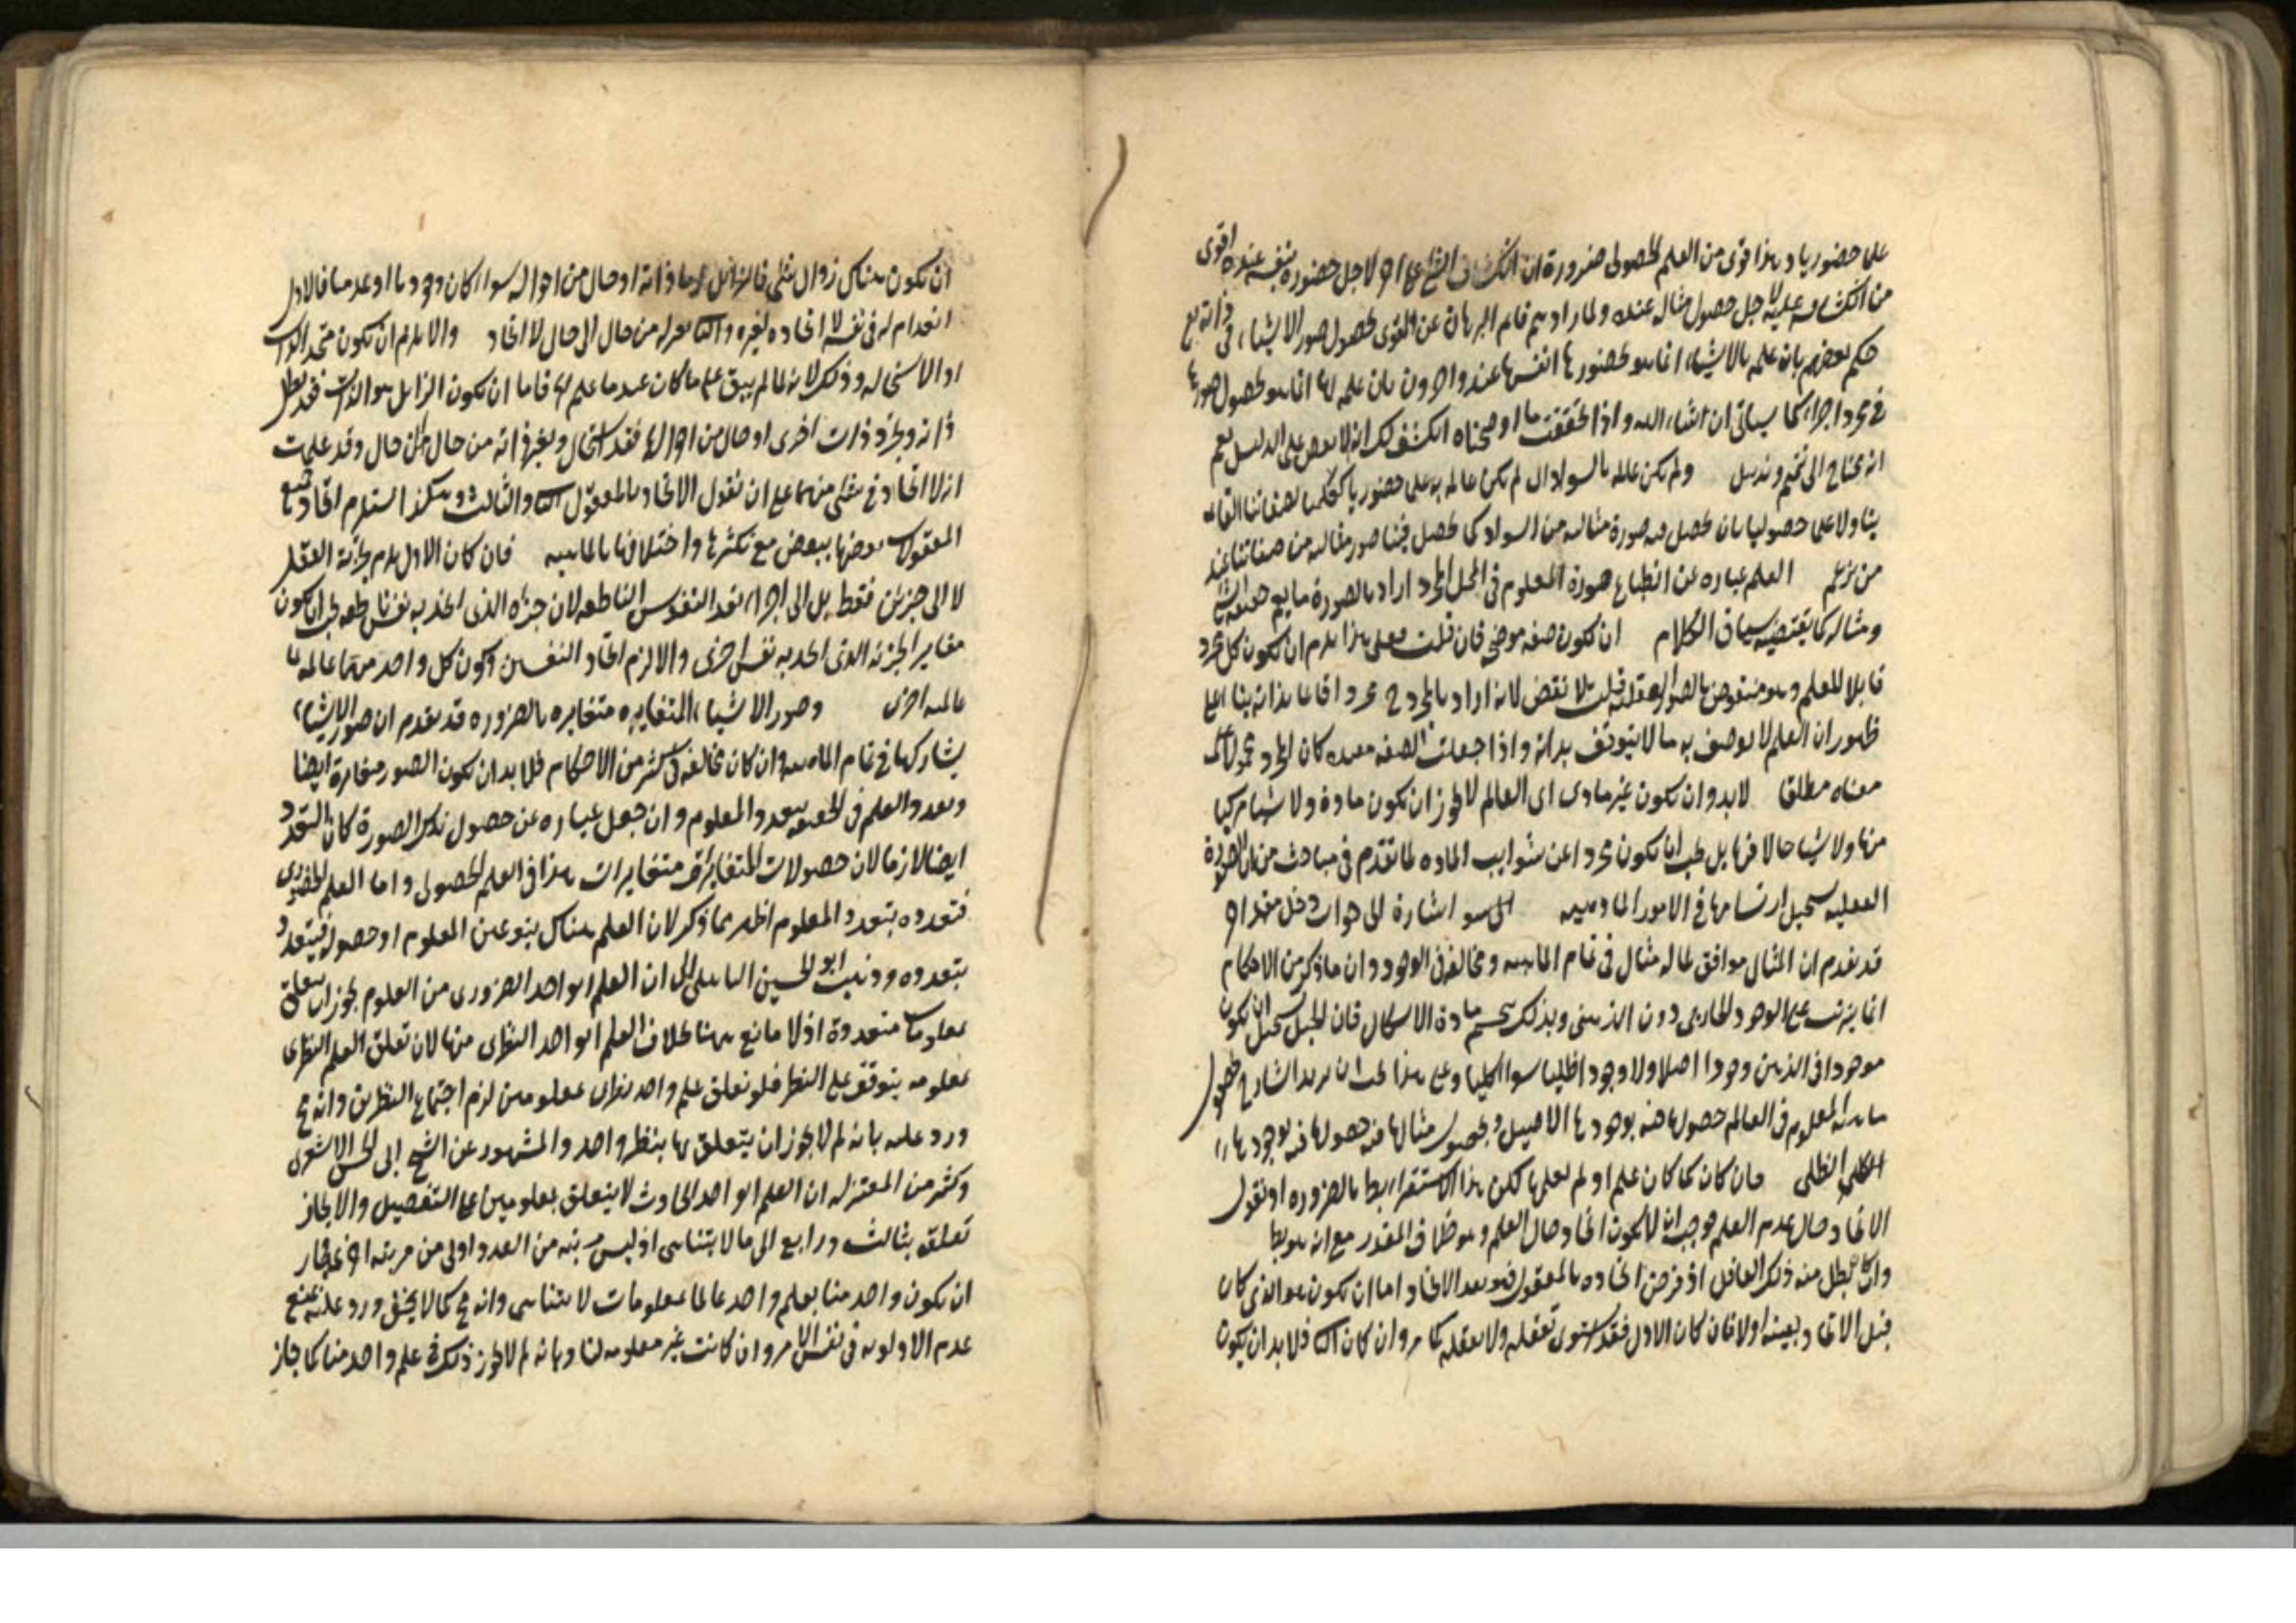 علما حضوريا وهذا اقوى من العلم الحصولى ضرورة ان انكشاف الشئ على اخر لاجل حضوره بنفسه عنده اقوى
من انكشافه عليه لاجل حصول مثاله عنده ولما راوا قام البرهان عن القوى بحصول صور الاشياء فى ذاته تع
حكم بعضهم بان علمه بالاشياء انما هو بحضورها انفسها عنده واخرون بان علمه لها انما هو بحصول صورها
فى مجرد اخر كما سياتى ان شاء الله واذا تحققت ما اوضحناه انكشف لك انه على الدليل
انه يحتاج الى تتميم ولم يكن عالما بالسواد اى لم يكن عالما به علما حضوريا كعلمنا بصفاتنا القائمه
بنا ولا علما حصوليا بان يحصل فيه صورة مثاليه من السواد كما يحصل فينا صور مثاليه من صفاتنا عند
من يزعم العلم عباره عن انطباع صورة المعلوم فى المحل المجرد اراد بالصورة ما يعم حقيقه الشئ
ومثاله كما يقتضيه سياق الكلام ان يكون صفه موضح فان قلت فعلى هذا يلزم ان يكون كل مجرد
قابلا للعلم وهو منقوض بالصور العقليه قلت لا نقض لانه اراد بالمجرد مجردا قائما بذاته بناء على
ظهور ان العلم لا يوصف به ما لا يقوم بذاته واذا جعلت الصفه مقيده كان المجرد محمولا على
معناه مطلقا لابد وان يكون غير مادى اى العالم لا يجوز ان يكون مادة ولا شيئا مركبا
منها ولا شيئا حالا فيها بل يجب ان يكون مجردا عن شوايب الماده لما تقدم فى مباحث من ان الصورة
العقليه يستحيل ارتسامها فى الامور الماديه اشارة الى جواب دخل مقدر
قد تقدم ان المثال موافق لما له مثال فى تمام الماهيه ومخالفه فى الوجود وان ما ذكر من الاحكام
انما يترتب على الوجود الخارجى دون الذهنى وبذلك ينحسم مادة الاشكال فان الجبل يستحيل ان يكون
موجودا فى الذهن وجودا اصيلا ولا وجودا ظليا سواء كليا وعلى هذا يجب ان يريد الشارح بحصول
ماهية المعلوم فى العالم حصولها فيه بوجودها الاصيل وبحصول مثالها فيه حصولها فيه بوجودها
الظلى فان كان كما كان علم او لم يعلم لكن هذا الاستقراء بط بالضروره او نقول
الاتحاد حال عدم العلم موجب ان لا يكون اتحاد حال العلم وهو خلاف المقدر مع انه هو بط
وان بطل منه ذلك العاقل اذ فرض اتحاده بالمعقول فهو بعد الاتحاد اما ان يكون هو الذى كان
قبل الاتحاد بعينه اولا فان كان الاول فقد استوى تعقله ولا تعقله كما مر وان كان الثانى فلا بد ان يكون
ان يكون هناك زوال شئ فالزائل اما ذاته او حال من احواله سواء كان وجوديا او عدميا فالاول
انعدام له فى نفسه لا اتحاده بغيره والثانى تغير له من حال الى حال لا اتحاد والا يلزم ان يكون متحد الذات
او الاستحاله وذلك لانه لما لم يبق على ما كان عند ما علم فاما ان يكون الزائل هو الذات فقد بطل
ذاته وتجدد ذات اخرى او حال من احواله فقد استحال وتغير ذاته من حال الى حال وقد علمت
انه لا اتحاد فى شئ منهما على ان نقول الاتحاد بالمعقول الثانى والثالث وهكذا استلزم اتحاد جميع
المعقولات بعضها ببعض مع تكثرها واختلافها بالماهيه فان كان الاول يلزم تجزئة العقل
لا الى جزئين فقط بل الى اجزاء بعدد النفوس الناطقه لان جزءه الذى اتحد به نفس ناطقه يجب ان يكون
مغايرا لجزئه الذى اتحد به نفس اخرى والا لزم اتحاد النفسين وكون كل واحد منهما عالمه بما
عالمه اخرى وصور الاشياء المتغايره متغايره بالضروره قد تقدم ان صور الاشياء
يشاركها فى تمام الماهيه وان كان مخالفه فى كثير من الاحكام فلا بد ان يكون الصور متغايرة ايضا
وتعدد العلم فى الحقيقه بتعدد المعلوم وان جعل عباره عن حصول تلك الصورة كان التعدد
ايضا لازما لان حصولات المتغايرات متغايرات هذا فى العلم الحصولى واما العلم الحضورى
فتعدده بتعدد المعلوم اظهر مما ذكر لان العلم هناك هو عين المعلوم او حصوله فيتعدد
بتعدده وذهب ابو الحسين الباهلى الى ان العلم الواحد الضرورى من العلوم يجوز ان يتعلق
بمعلومات متعددة اذ لا مانع هناك بخلاف العلم الواحد النظرى منها لان تعلق العلم النظرى
بمعلومه يتوقف على النظر فلو تعلق علم واحد نظرى بمعلومين لزم اجتماع النظرين وانه مح
ورد عليه بانه لم لا يجوز ان يتعلق بها بنظر واحد والمشهور عن الشيخ ابى الحسن الاشعرى
وكثير من المعتزله ان العلم الواحد الحادث لا يتعلق بمعلومين على التفصيل والا لجاز
تعلقه بثالث ورابع الى ما لا يتناهى اذ ليس مرتبه من العدد اولى من مرتبه اخرى فجاز
ان يكون واحد منا بعلم واحد عالما بمعلومات لا يتناهى وانه مح كما لا يخفى ورد عليه بمنع
عدم الاولويه فى نفس الامر وان كانت غير معلومه لنا وبانه لم لا يجوز ذلك فى علم واحد منا كما جاز